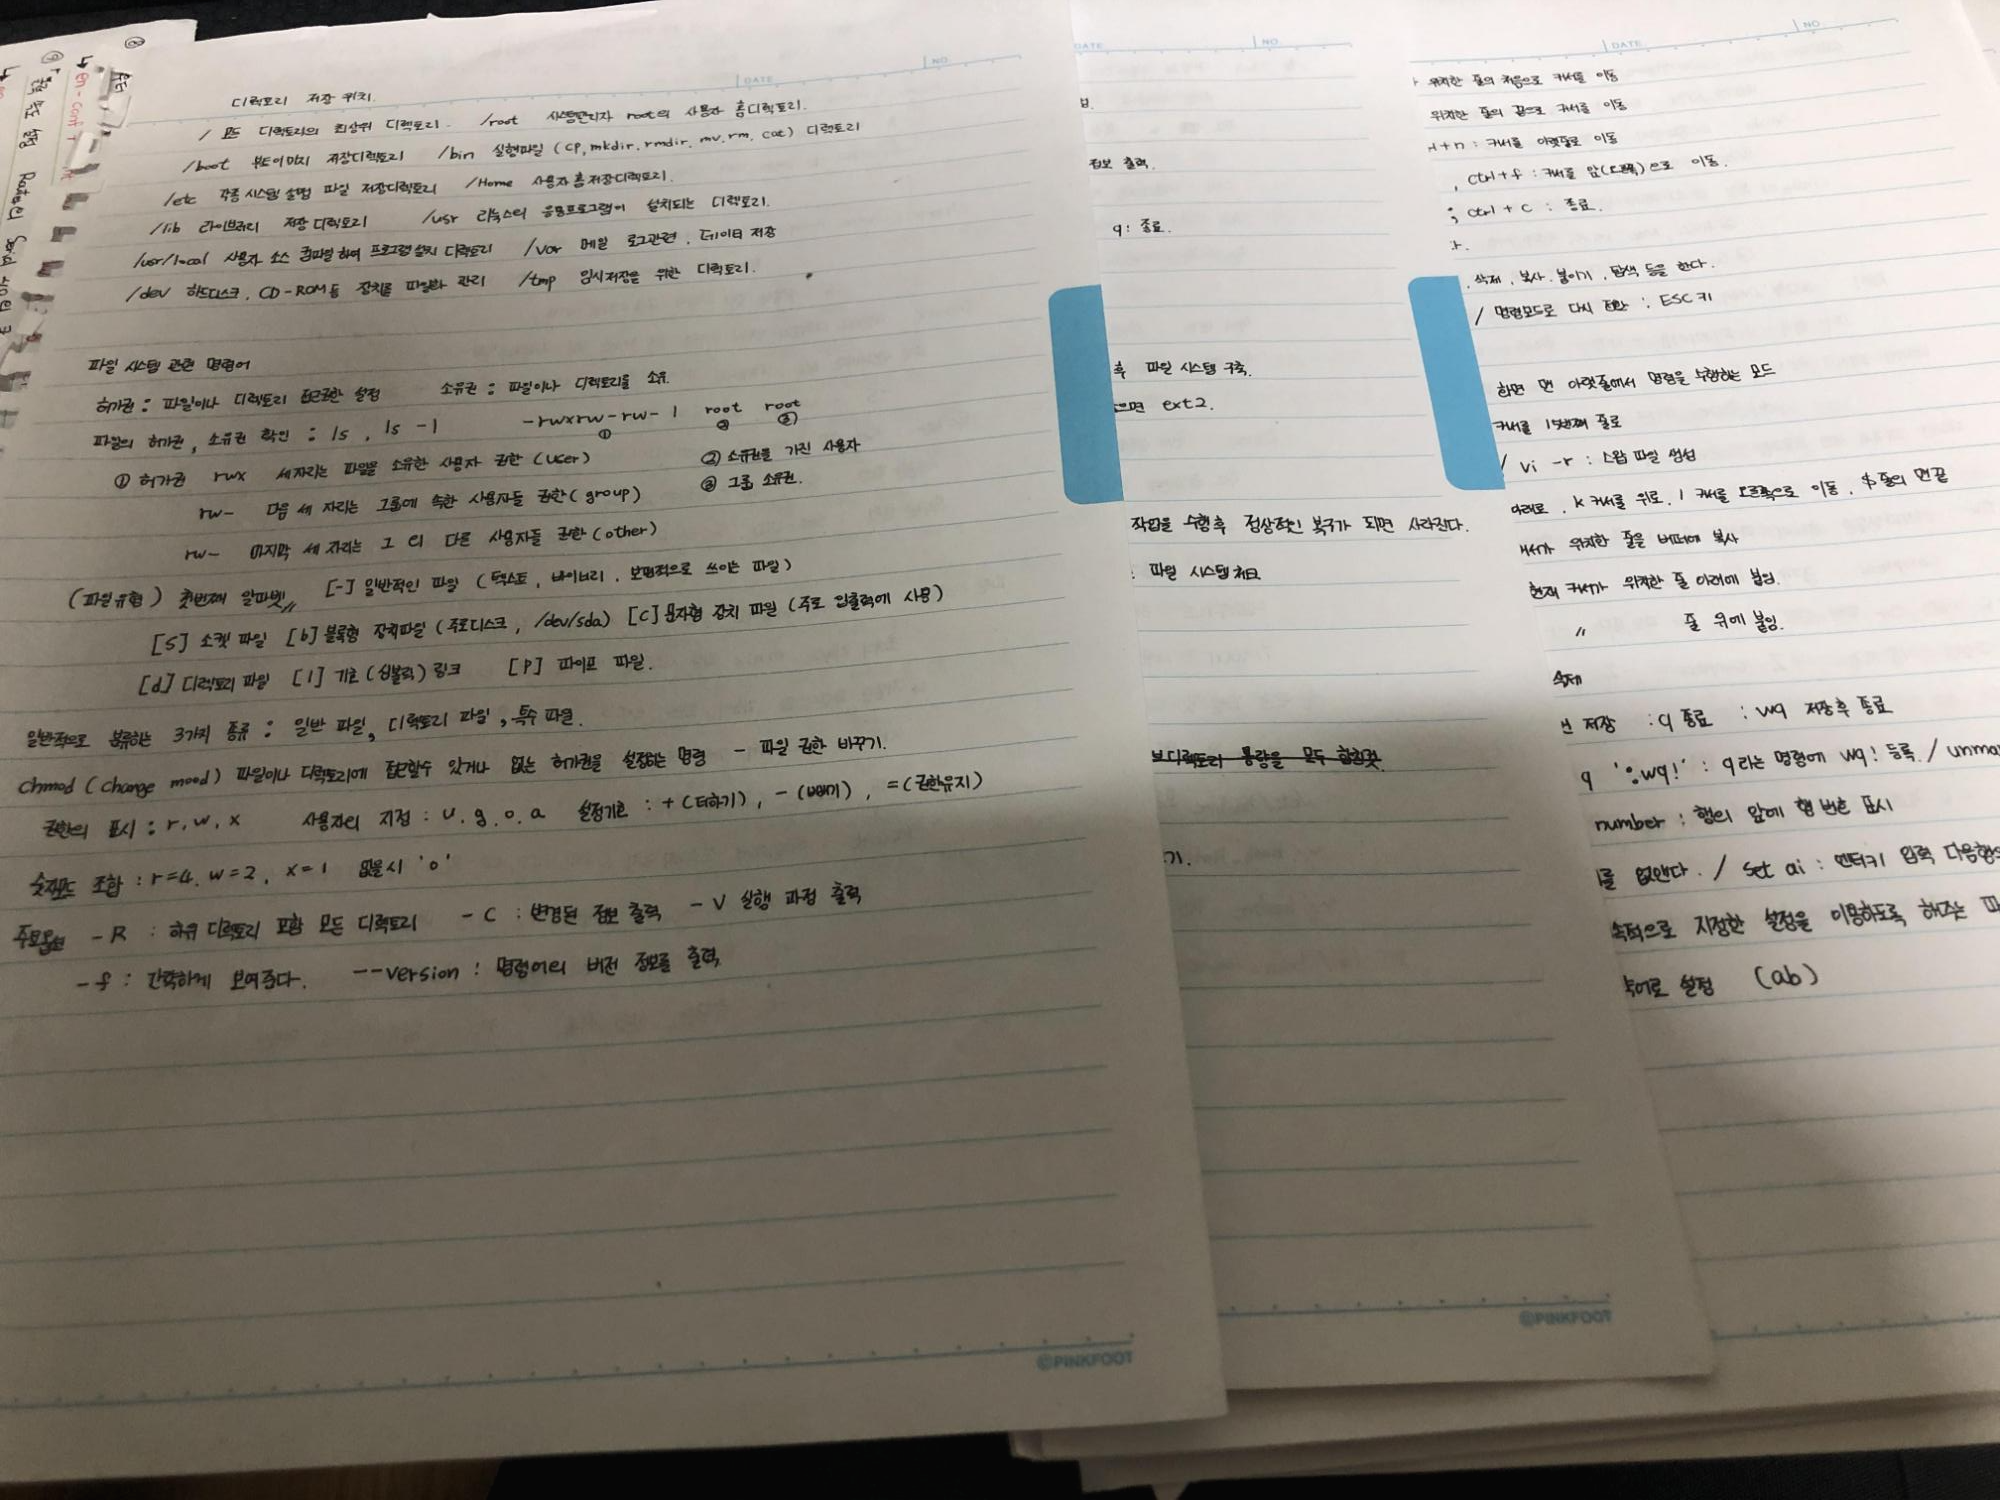 DATE
NO.
디렉토리 저장 위치.
/ 모든 디렉토리의 최상위 디렉토리. /root 시스템관리자 root의 사용자 홈디렉토리.
/boot 부트이미지 저장디렉토리 /bin 실행파일 (cp, mkdir, rmdir, mv, rm, cat) 디렉토리
/etc 각종 시스템 설정 파일 저장디렉토리 /Home 사용자 홈 저장디렉토리.
/lib 라이브러리 저장 디렉토리 /usr 리눅스의 응용프로그램이 설치되는 디렉토리.
/usr/local 사용자 소스 컴파일하여 프로그램 설치 디렉토리 /var 메일 로그관련, 데이터 저장
/dev 하드디스크, CD-ROM 등 장치를 파일화 관리 /tmp 임시저장을 위한 디렉토리.
파일 시스템 관련 명령어
허가권 : 파일이나 디렉토리 접근권한 설정 소유권 : 파일이나 디렉토리를 소유.
파일의 허가권, 소유권 확인 : ls, ls -l -rwxrw-rw- 1 root root
① ② ③
① 허가권 rwx 세자리는 파일을 소유한 사용자 권한 (user) ② 소유권을 가진 사용자
rw- 다음 세 자리는 그룹에 속한 사용자들 권한 (group) ③ 그룹 소유권.
rw- 마지막 세 자리는 그 외 다른 사용자들 권한 (other)
(파일유형) 첫번째 알파벳〃 [-] 일반적인 파일 (텍스트, 바이너리, 보편적으로 쓰이는 파일)
[S] 소켓 파일 [b] 블록형 장치파일 (주로디스크, /dev/sda) [C] 문자형 장치 파일 (주로 입출력에 사용)
[d] 디렉토리 파일 [l] 기호 (심볼릭) 링크 [P] 파이프 파일.
일반적으로 분류하는 3가지 종류 : 일반 파일, 디렉토리 파일, 특수 파일.
chmod (change mood) 파일이나 디렉토리에 접근할수 있거나 없는 허가권을 설정하는 명령 - 파일 권한 바꾸기.
권한의 표시 : r, w, x 사용자의 지정 : u, g, o, a 설정기호 : + (더하기), - (빼기), = (권한유지)
숫자모드 조합 : r=4, w=2, x=1 없을시 'o'
주요옵션 -R : 하위 디렉토리 포함 모든 디렉토리 -C : 변경된 정보 출력 -V 실행 과정 출력
-f : 간략하게 보여준다. --version : 명령어의 버전 정보를 출력
©PINKFOOT
DATE
NO.
정보 출력.
q : 종료.
후 파일 시스템 구축.
으면 ext2.
작업을 수행후 정상적인 복구가 되면 사라진다.
: 파일 시스템 체크
브디렉토리 용량을 모두 합한것.
기.
©PINKFOOT
DATE
NO.
위치한 줄의 처음으로 커서를 이동
위치한 줄의 끝으로 커서를 이동
l+n : 커서를 아랫줄로 이동
, ctrl+f : 커서를 앞(오른쪽)으로 이동.
; ctrl + c : 종료.
, 삭제, 복사, 붙이기, 탐색 등을 한다.
/ 명령모드로 다시 전환 : ESC 키
화면 맨 아랫줄에서 명령을 수행하는 모드
커서를 15번째 줄로
/ vi -r : 스왑 파일 생성
아래로, k 커서를 위로, l 커서를 오른쪽으로 이동, $ 줄의 맨끝
커서가 위치한 줄을 버퍼에 복사
현재 커서가 위치한 줄 아래에 붙임.
〃 줄 위에 붙임.
삭제
저장 :q 종료 :wq 저장후 종료
q ':wq!' : q라는 명령에 wq! 등록 / unma
number : 행의 앞에 행 번호 표시
를 없앤다. / set ai : 엔터키 입력 다음행
속적으로 지정한 설정을 이용하도록 해주는 파
약어로 설정 (ab)